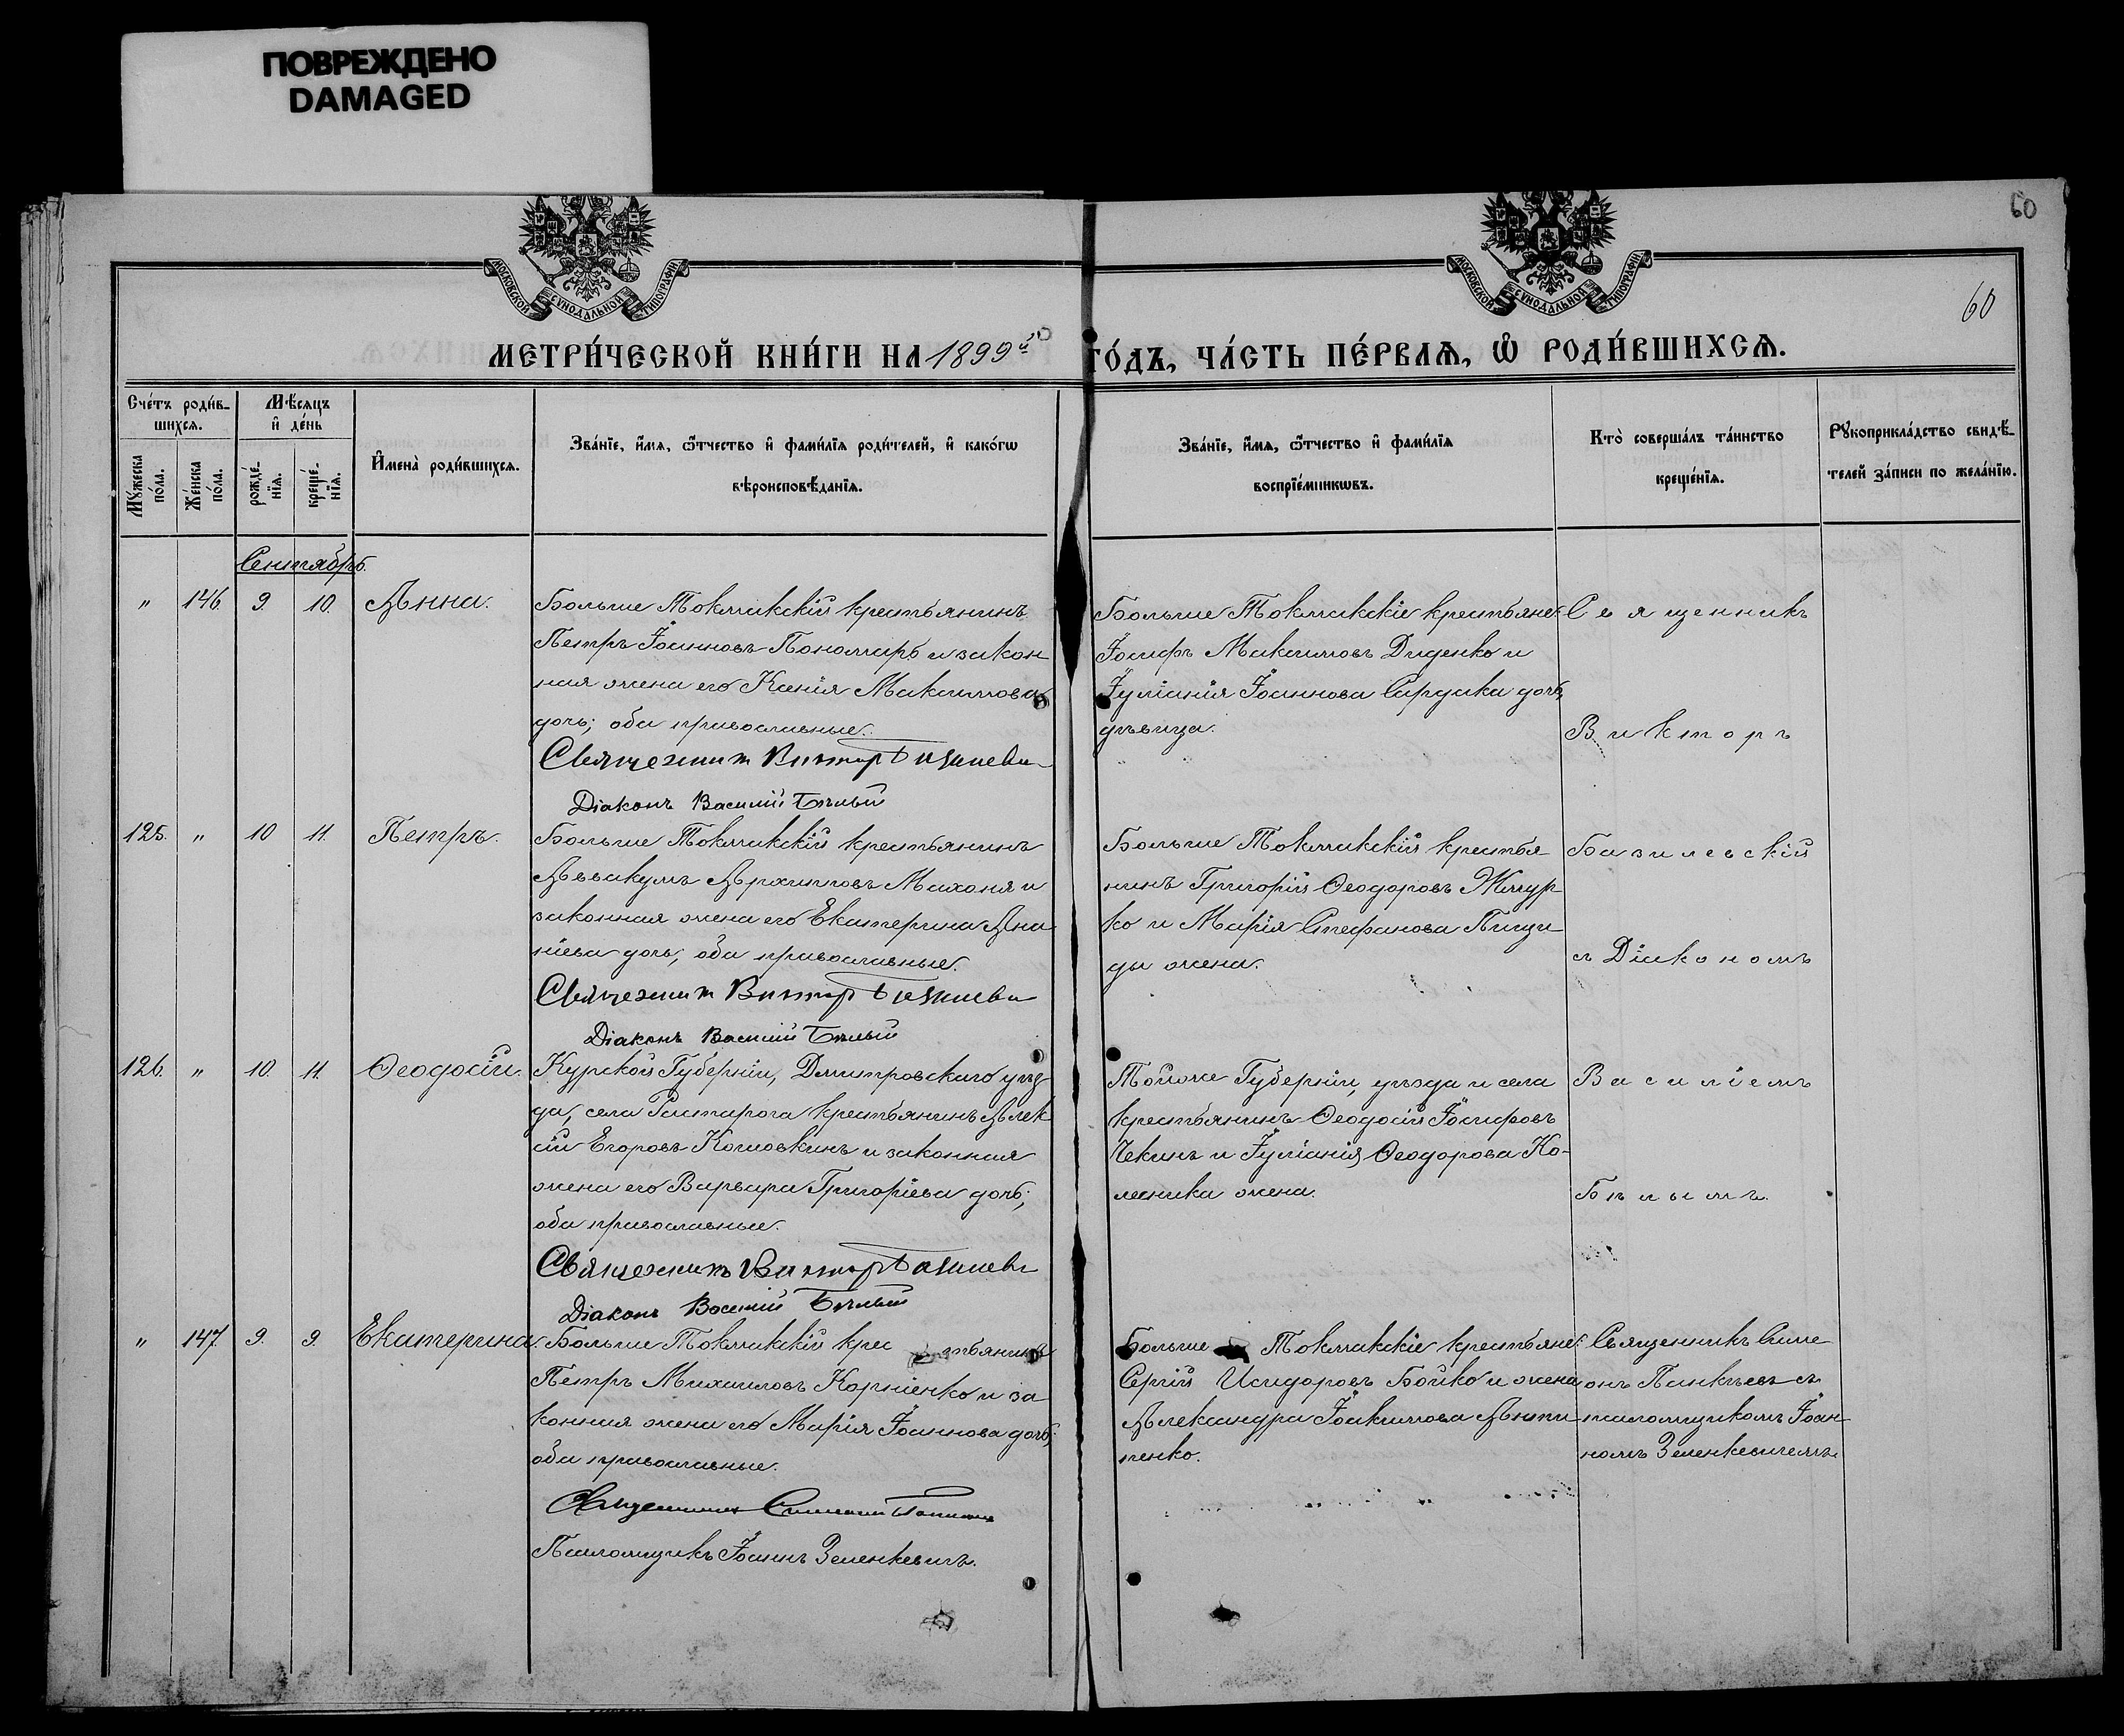 ПОВРЕЖДЕНО
DAMAGED
60
60
МОСКОВСКОЙ СѴНОДАЛЬНОЙ ТИПОГРАФІИ
МОСКОВСКОЙ СѴНОДАЛЬНОЙ ТИПОГРАФІИ
МЕТРИ́ЧЕСКОЙ КНИ́ГИ НА 1899й ГО́ДЪ, ЧА́СТЬ ПЕ́РВАѦ, Ѡ РОДИ́ВШИХСѦ.
Сче́тъ роди́в-
шихсѧ.
Мꙋ́жеска по́ла.
Же́нска по́ла.
Мѣ́сѧцъ
и҆ де́нь
рожде́-
нїѧ.
креще́-
нїѧ.
И҆мена̀ роди́вшихсѧ.
Зва́нїе, и҆́мѧ, ѻ҆́тчество и҆ фами́лїѧ роди́телей, и҆ како́гѡ
вѣроисповѣ́данїѧ.
Зва́нїе, и҆́мѧ, ѻ҆́тчество и҆ фами́лїѧ
воспрїе́мникѡвъ.
Кто̀ соверша́лъ та́инство
креще́нїѧ.
Рꙋкоприкла́дство свидѣ́-
телей за́писи по жела́нїю.
Сентябрь.
" 146. 9. 10. Анна.
Больше Токмакскій крестьянинъ
Петръ Іоанновъ Пономарь и закон
ная жена его Ксенія Максимова
дочь; оба православные.
Священникъ Викторъ Базилевс
Діаконъ Василій Бѣлый
Больше Токмакскіе крестьяне:
Іосифъ Максимовъ Диденко и
Іуліанія Іоаннова Сардака дочь,
дѣвица.
Священникъ
Викторъ
125. " 10 11. Петръ.
Больше Токмакскій крестьянинъ
Аввакумъ Архиповъ Махоня и
законная жена его Екатерина Ана
ніева дочь; оба православные.
Священникъ Викторъ Базилевс
Діаконъ Василій Бѣлый
Больше Токмакскій крестья-
нинъ Григорій Ѳеодоровъ Жмур
ко и Марія Стефанова Пищи
ды жена.
Базилевскій
съ Діакономъ
126. " 10. 11. Ѳеодосій.
Курской Губерніи, Дмитровскаго уѣз
да, села Растарога крестьянинъ Алек
сій Егоровъ Кошовкинъ и законная
жена его Варвара Григоріева дочь;
оба православные.
Священникъ Викторъ Базилевс
Діаконъ Василій Бѣлый
Тойже Губерніи, уѣзда и села
крестьянинъ Ѳеодосій Іосифовъ
Чекинъ и Іуліанія Ѳеодорова Ко-
лесника жена.
Василіемъ
Бѣлымъ.
" 147. 9. 9. Екатерина.
Больше Токмакскій крес тьянинъ
Петръ Михаиловъ Корніенко и за
конная жена его Марія Іоаннова дочь;
оба православные.
Священникъ Симеонъ
Псаломщикъ Іоаннъ Зеленкевичъ.
Больше Токмакскіе крестьяне:
Сергій Исидоровъ Бойко и жена
Александра Іоакимова Анти
пенко.
Священникъ Симе
онъ Панкѣевъ съ
псаломщикомъ Іоан-
номъ Зеленкевичемъ.